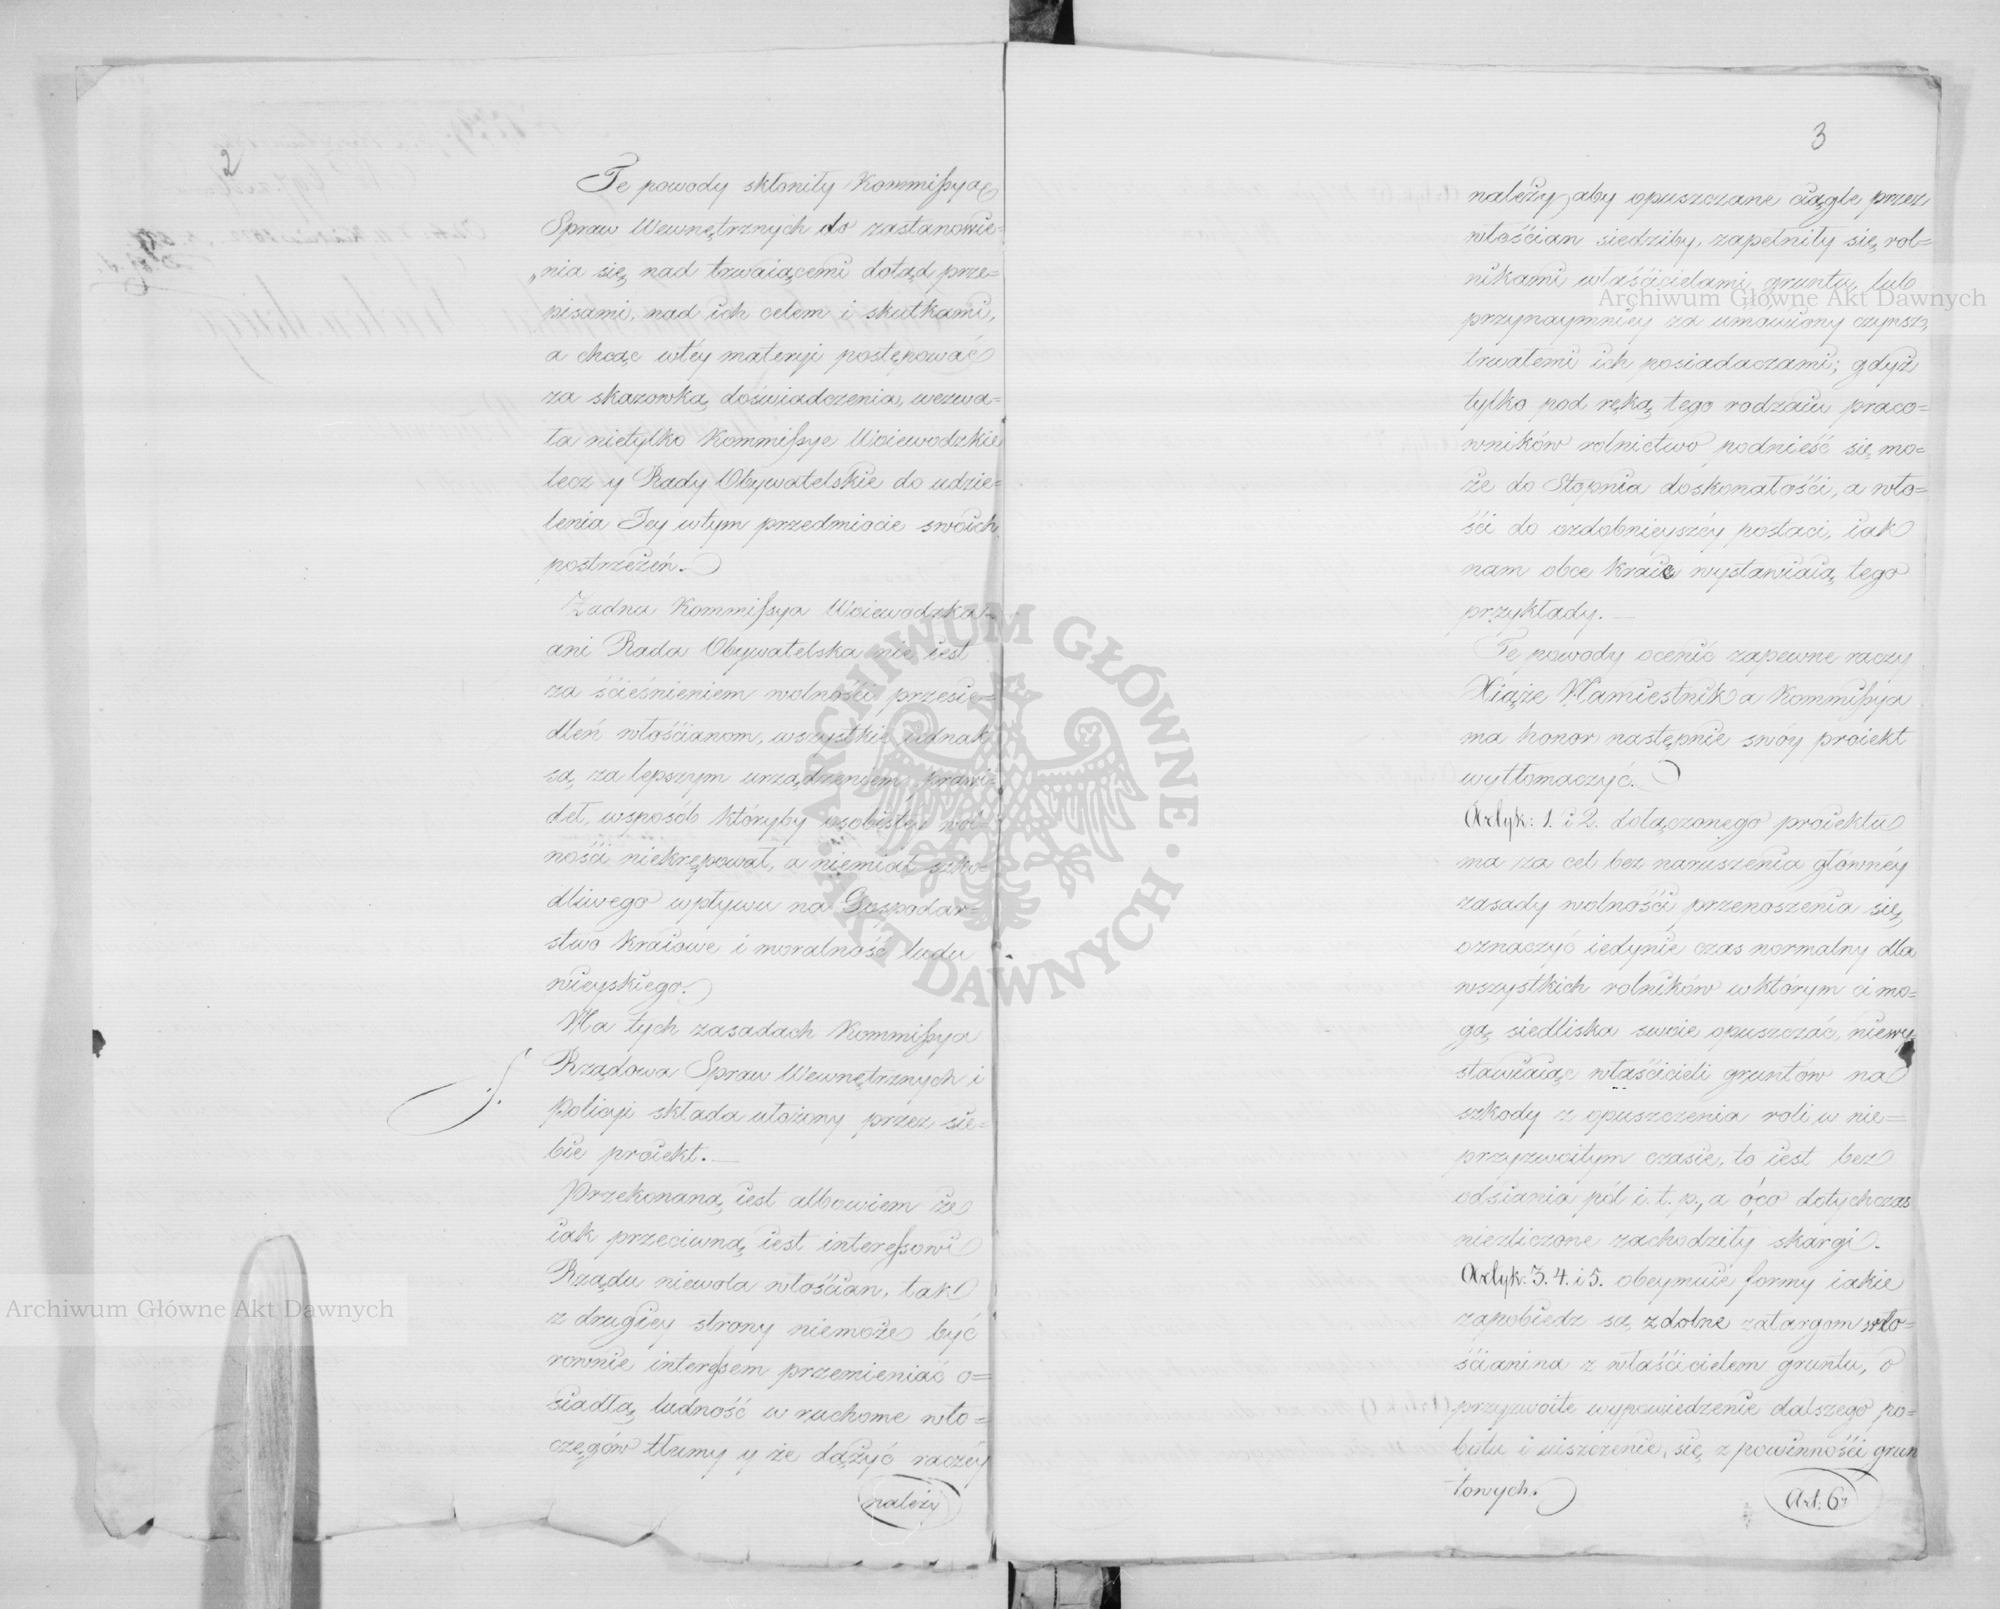 2
Te powody skłoniły Kommissyąę
Spraw Wewnętrznych do zastanowie=
„nia się, nad trwaiącemi dotąd prze=
pisami, nad ich celem i skutkami,
a chcąc wtéy materyi postępować
za skazowką doświadczenia, wezwa=
ła nietylko Kommissye Woiewodzkie
lecz y Rady Obywatelskie do udzie=
lenia Jey wtym przedmiocie swoich
postrzeżeń.
Żadna Kommissya Woiewodzka
ani Rada Obywatelska nie iest
za śćieśnieniem wolnośći przesie=
dleń włośćianom, wszystkie iednak
są, za lepszym urządzeniem prawi=
deł, wsposób któryby osobistéy wol=
nośći niekrępował, a niemiał szko=
dliwego wpływu na Gospodar=
stwo kraiowe i moralność ludu
wieyskiego.
Na tych zasadach Kommissya
Rządowa Spraw Wewnętrznych i
Policyi składa ułożony przez sie=
bie proiekt.
Przekonaną iest albowiem że
iak przeciwną iest interessowi
Rządu niewola włośćian, tak
z drugiey strony niemoże być
rownie interessem przemieniać o=
siadłą ludność w ruchome włó=
częgów tłumy y że dążyć raczéy
należy
3
należy, aby opuszczane ciągle przez
włośćian siedziby, zapełniły się rol=
nikami właśćicielami gruntu, lub
przynaymniey za umowiony czynsz,
trwałemi ich posiadaczami; gdyż
tylko pod ręką tego rodzaiu praco=
wników rolnictwo podnieść się mo=
że do Stopnia doskonałośći, a wło=
śći do ozdobnieyszéy postaci, iak
nam obce kraie wystawiaią tego
przykłady.
Te powody ocenić zapewne raczy
Xiąże Namiestnik a Kommissya
ma honor następnie swóy proiekt
wytłomaczyć.
Artyk: 1. i 2. dołączonego proiektu
ma za cel bez naruszenia głównéy
zasady wolnośći przenoszenia się,
oznaczyć iedynie czas normalny dla
wszystkich rolników wktórym ci mo=
gą siedliska swoie opuszczać, niewy=
stawiaiąc właśćicieli gruntów na
szkody z opuszczenia roli w nie=
przyzwoitym czasie, to iest bez
odsiania pól i. t. p., a oco dotychczas
niezliczone zachodziły skargi.
Artyk: 3. 4. i 5. obeymuie formy iakie
zapobiedz są zdolne zatargom wło=
śćianina z właśćicielem gruntu, o
przyzwoite wypowiedzenie dalszego po=
bytu i uiszczenie się z powinnośći grun
towych.
Art: 6y
Archiwum Główne Akt Dawnych
Archiwum Główne Akt Dawnych
ARCHIWUM GŁÓWNE · AKT DAWNYCH ·